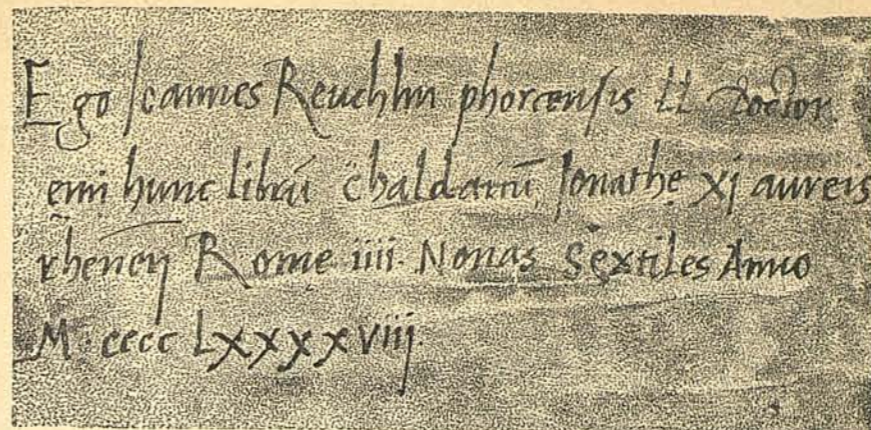 Ego Ioannes Reuchlin phorcensis LL doctor.
emi hunc librū chaldaicū Ionathę xj aureis
rhenēn Romę iiii. Nonas Sextiles Anno
M. cccc Lxxxxviii.